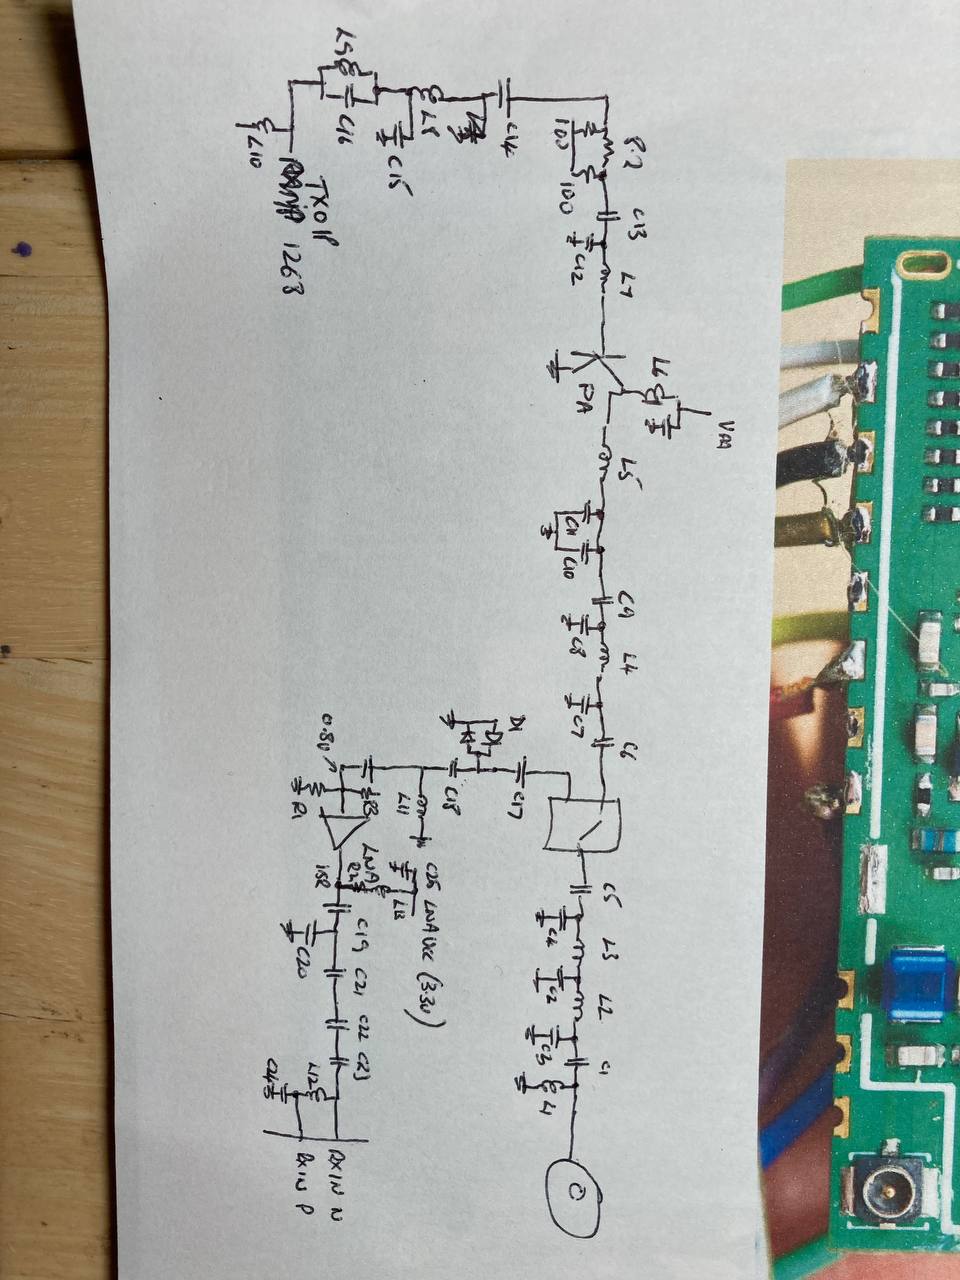 L9
C16
L10
C15
L8
C14
TXOP
1268
8.2
100
100
C13
C12
L7
PA
L6
VAA
L5
C11
C10
C9
C8
L4
C7
C6
D1
C17
C18
L11
0.8v
R1
LNA
L13
C25 LNA VCC (3.3v)
C19
C20
C21
C22
C23
L12
C24
RXIN N
RXIN P
C5
C4
L3
C2
L2
C3
C1
L1